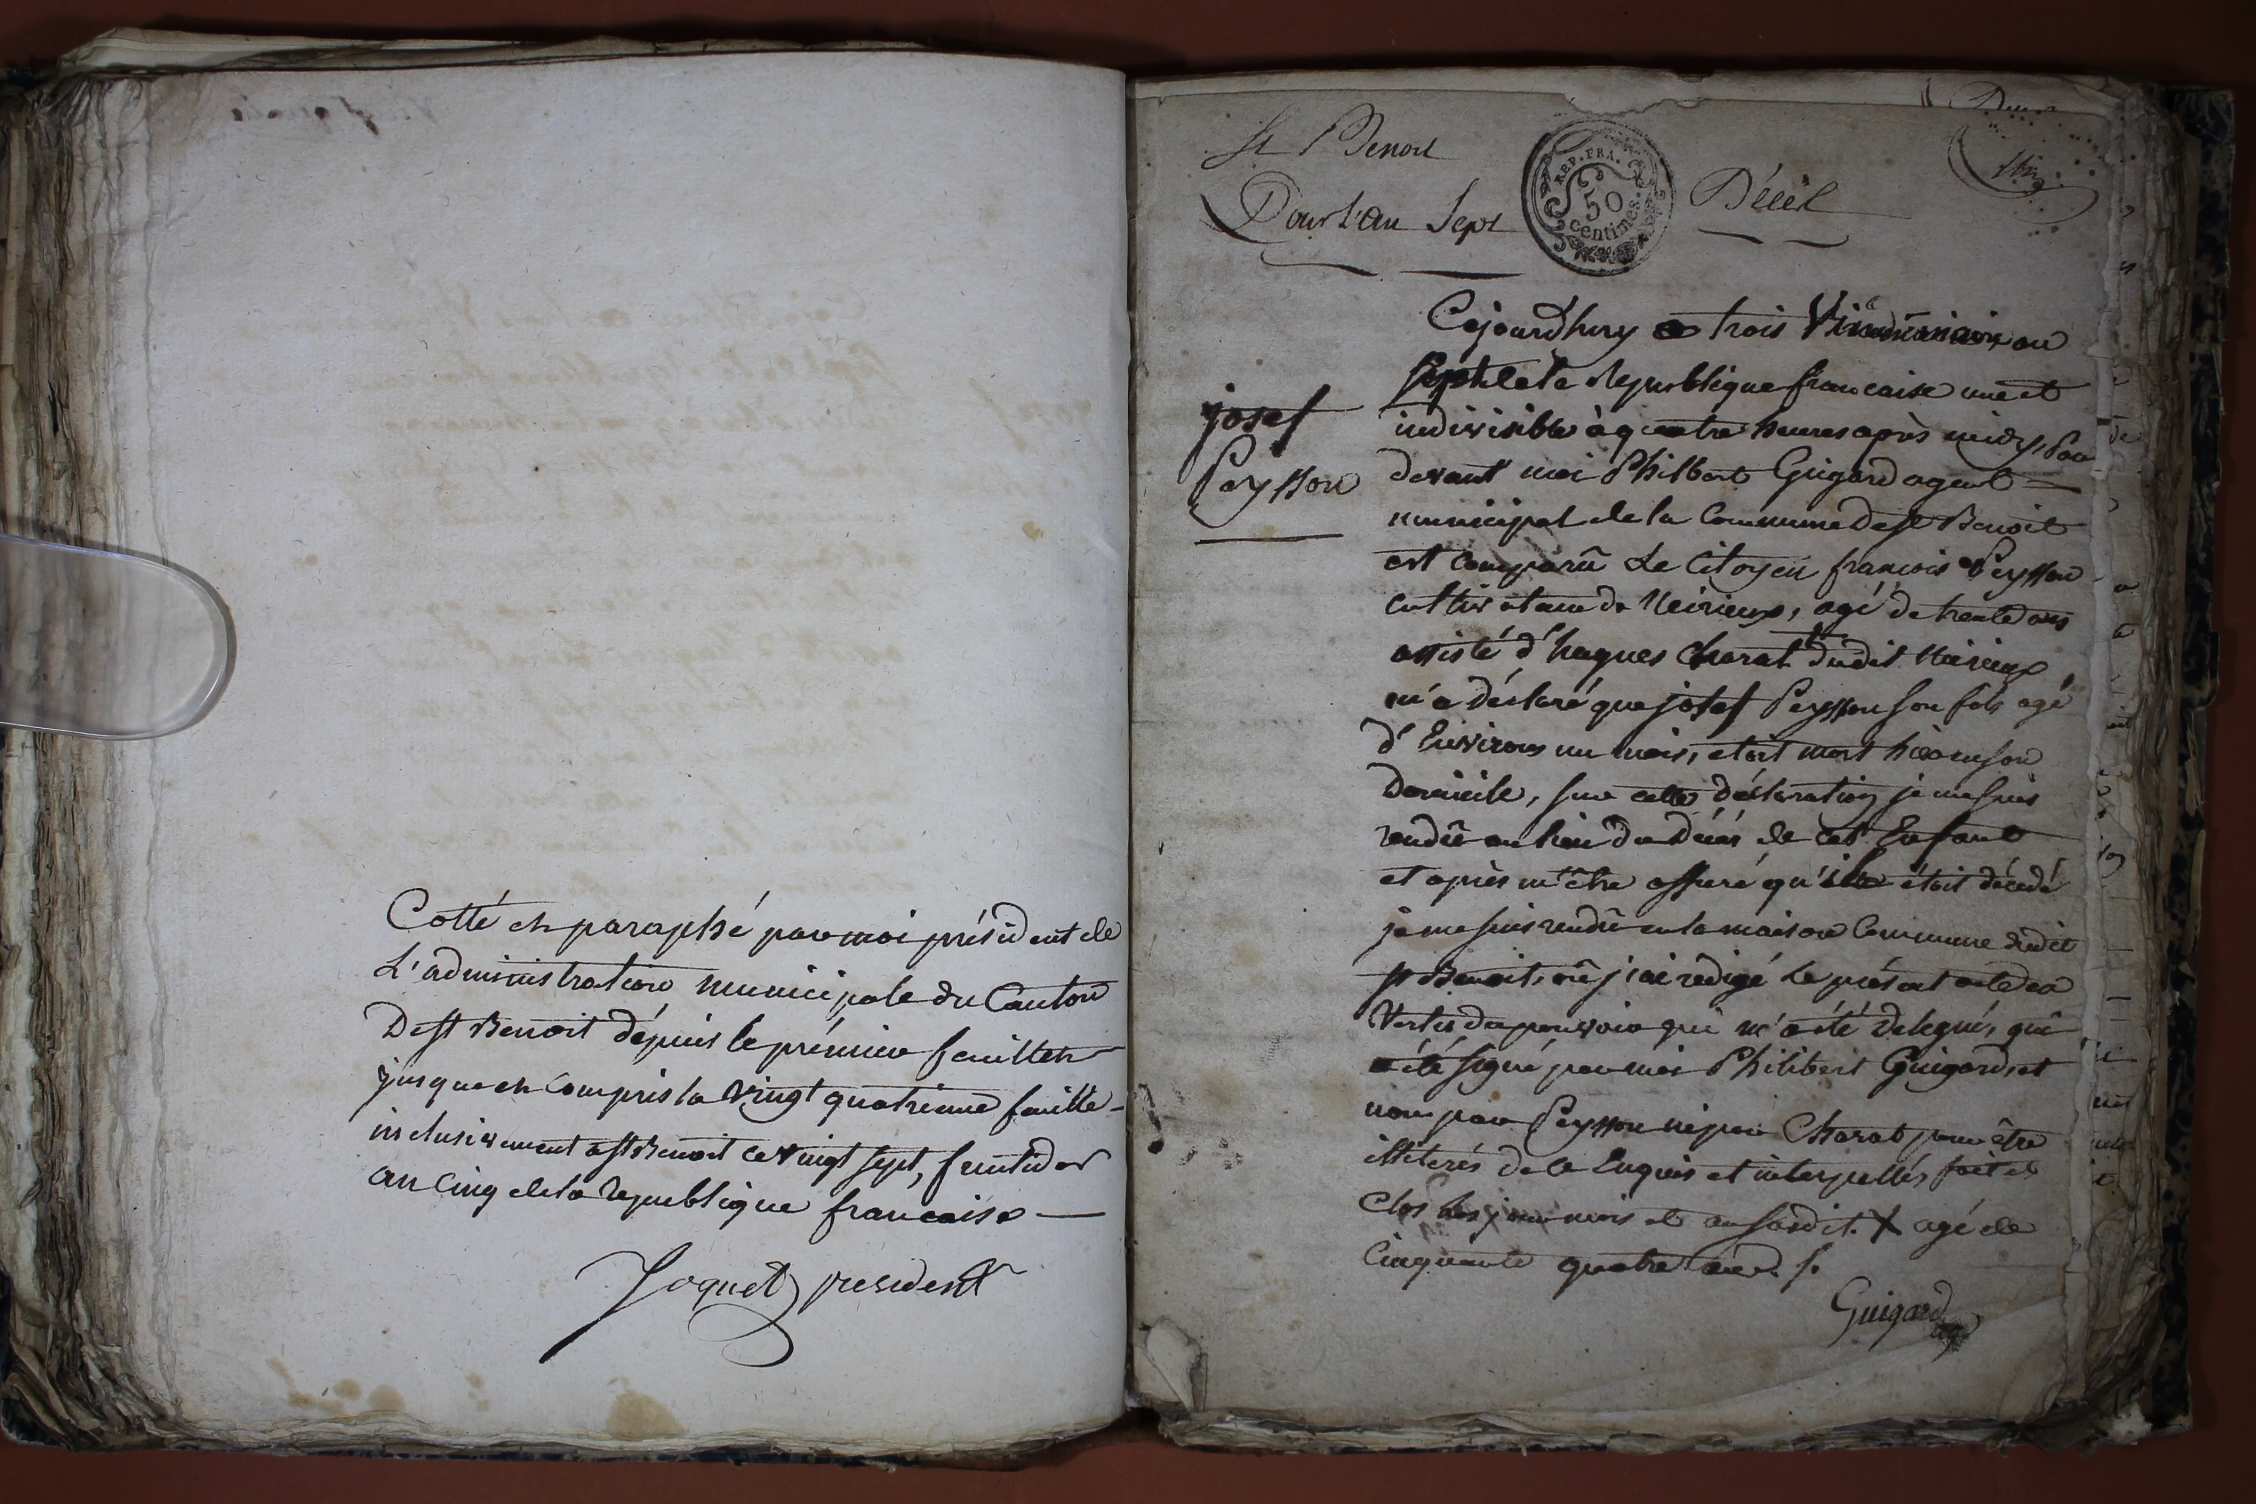 Cotté et paraphé par moi président de
L'administration municipale du Canton
De st Benoit dépuis le prémier feuillet
jusque et compris la Vingt quatrieme feuille
inclusivement a st Benoit ce vingt sept, fructidor
an cinq de la republique francaise
Joquet president
St Benoit
Pour L'an Sept
REP. FRA.
50
centimes.
Décès
josef
Peysson
Cejourdhuy trois Vindémiaire an
Sept de la Republique francaise une et
indivisible à quatre heures après midy, Par
devant moi Philbert Guigard agent
municipal de la Commune de st Benoit
est comparû Le Citoyen francois Peysson
cultivateur de , agé de trente ans
assisté d'huques Charat dudit
m'a déclaré que josef Peysson son fils agé
d'Environs un mois, etoit mort hier en son
Domicile, sur cette déclaration je me suis
rendû au lieu du Décès de cet Enfant
et après m'être assuré qu'il étoit décedé
je me suis rendû en la maison Commune dudit
st Benoit, où j'ai redigé Le présent acte en
Vertu du pouvoir qui m'a été delegués, qui
a été signé par moi Philibert Guigard, et
non par Peysson ni par Charat pour être
illeterés de ce Enquis et interpellés, fait et
Clos les jour mois et an susdit. X agé de
Cinquante quatre ans. /.
Guigard